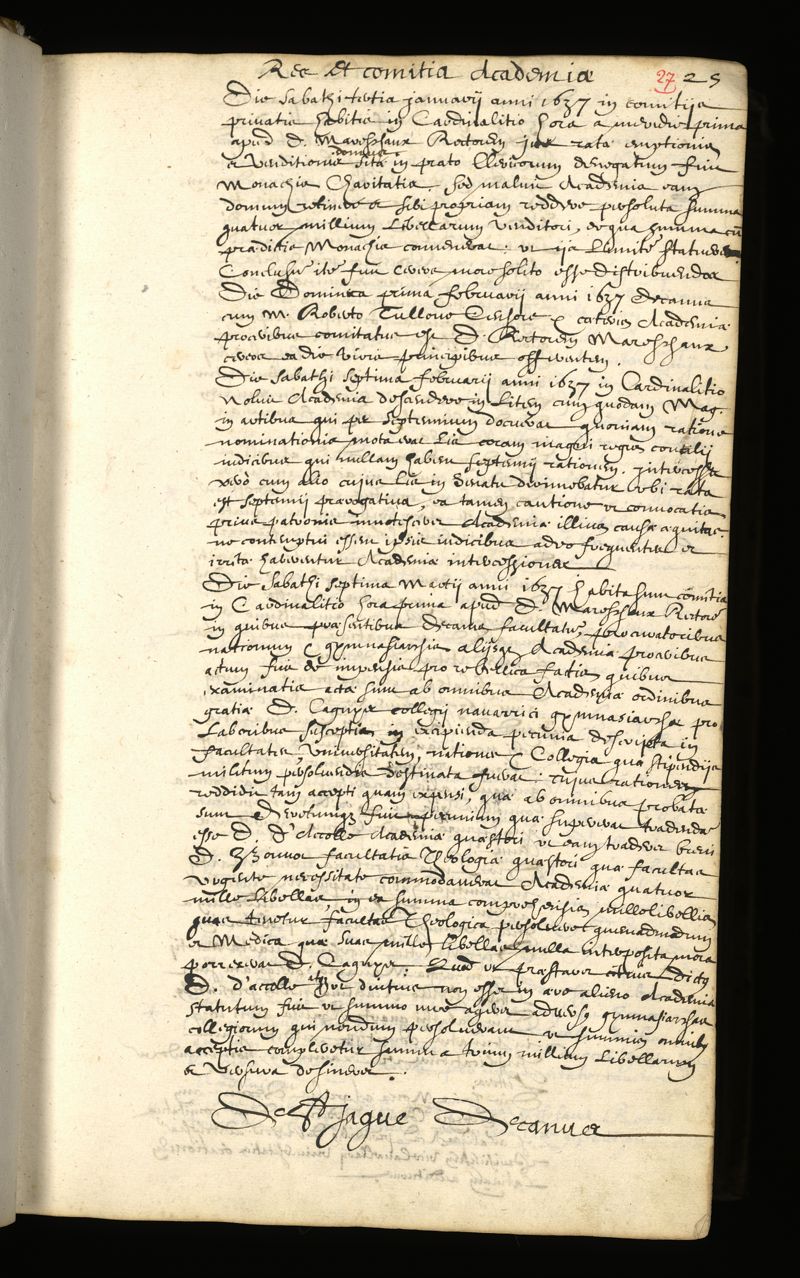 Res et comitia Academiæ 27 25
Die Sabathi tertia januarij anni 1637 in comitijs
privatis habitis in Cardinalitio hora a meridie prima
apud D. Mareschaux Rectorem jus rata emptionis
et venditionis domus sitæ in prato Clericorum denegatum fuit
Monachis Charitatis. sed maluit Academia eam
domum retinere et sibi propriam reddere persoluta summa
quatuor millium libellarum venditori, de qua summa cũ
prædictis Monachis convenerat. ut ijs limitẽ statueret
Conclusũ itẽ fuit cereos more solito esse distribuendos
Die Dominica prima februarij anni 1637 Decanus
cum M. Roberto Tullone Censore & cæteris Academiæ
proceribus comitatus est D. Rectorem Mareschaux
cereos ea die viris principibus offerentem.
Die Sabathi septima februarij anni 1637 in Cardinalitio
Noluit Academia descendere in litem cum quodam Mag.
in artibus qui per septennium docuerat quoniam ratione
nominationis mota erat lis coram magni regis consilij
iudicibus qui nullam habent septennij rationem. intercessit
verò cum alio cujus lis in senatu decinebatur ubi rata
est septennij prærogativa, ea tamen cautione ut convocatis
prius patronis innotesceret Academiæ illius causæ æquitas.
ne contemptui essent ipsis iudicibus adeo frequentes et
irritæ haberentur Academiæ intercessiones
Die Sabathi septima Martij anni 1637 habita sunt comitia
in Cardinalitio hora prima apud D. Mareschaux Rectorẽ
in quibus præsentibus Decanis facultatũ, procuratoribus
nationum & gymnasiarchis alijsqz Academiæ proceribus
actum fuit de impensis pro re bellica factis quibus
examinatis actæ sunt ab omnibus Academiæ ordinibus
gratiæ D. Cagnyes collegij navarrici gymnasiarchæ pro
laboribus susceptis in excipienda pecunia descripta in
facultates, universitatem, nationes & Collegia quæ stipendijs
militum persolvendis destinata fuerat: cujus rationes
reddidit tam accepti quam expensi, quæ ab omnibus probatæ
sunt decretumqz fuit pecuniam quæ supererat tradendã
esse D. D'Accolle Academiæ quæstori ut eam traderet
D. facultatis Theologiæ quæstori quæ facultas
urgente necessitate commodaverat Academiæ quatuor
mille libellas, in ea summa comprehensis mille libellis
quas tenetur facultas Theologica persolvere quemadmodum
et Medica quæ suas mille libellas nulla interposita mora
porrexerat D. Cagnyes. Quod ut præstaret dictus
D. d'accolle utqz diutius non esset in ære alieno Academia
statutum fuit ut summo iure ageret adversus gymnasiarchas
collegiorum qui nondum persolverant ut summis omnibus
acceptis compleretur summa trium millium libellarum
& versura desineret.
Decanus